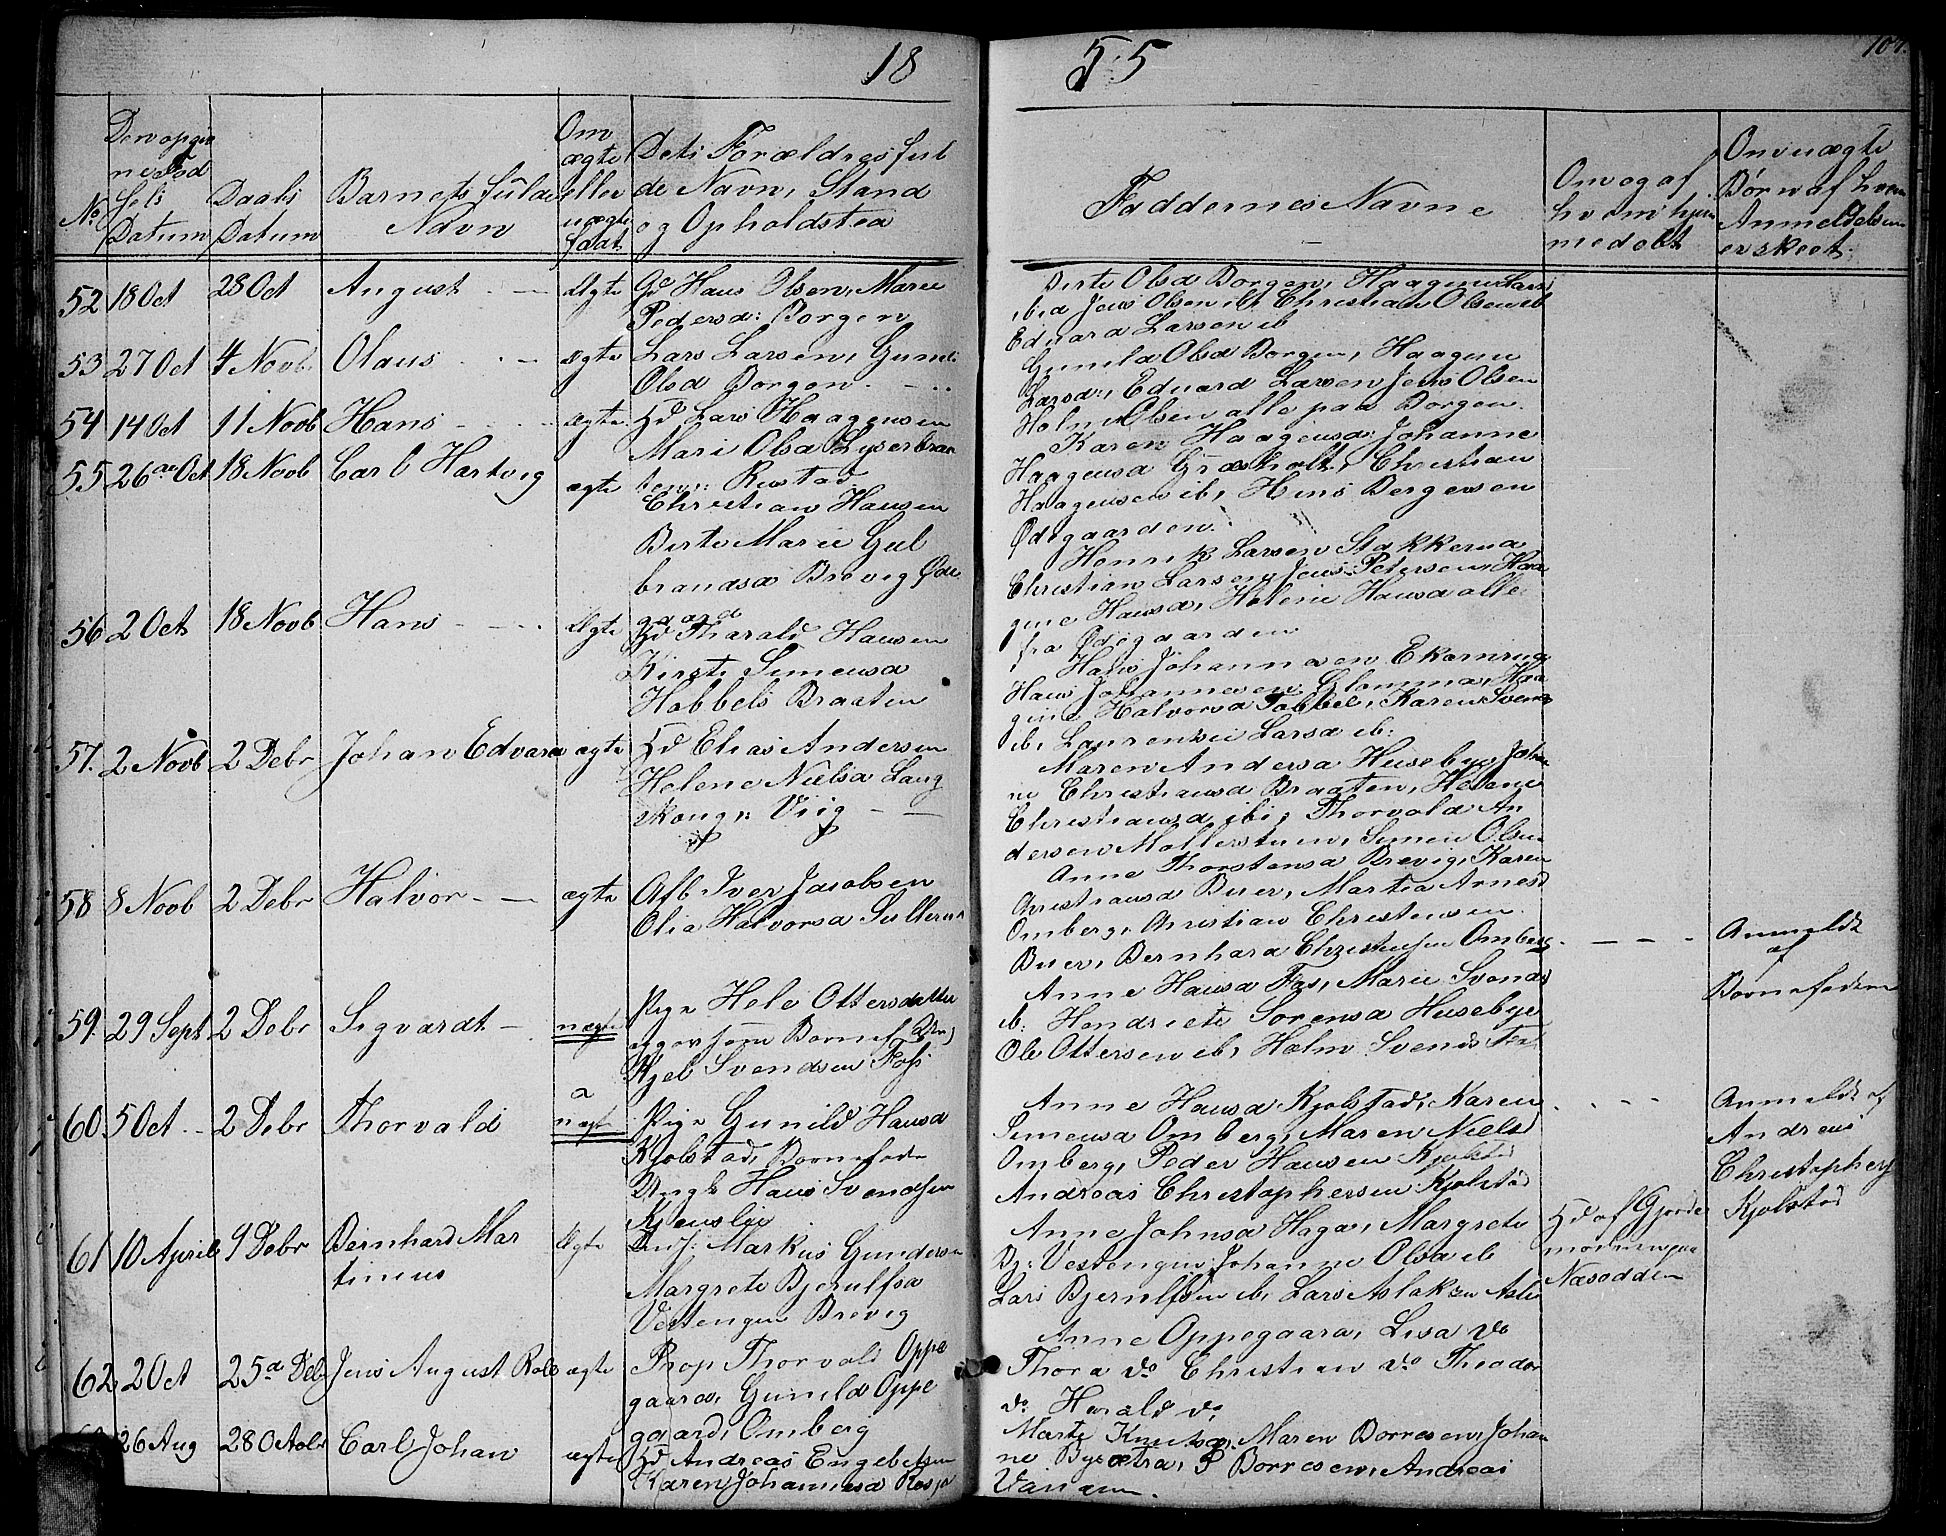 18 55
107.
No
Datum
Daabs
Datum
Barnets fulde
Navn
Om
ægte
eller
uægte
født
Dets Forældres ful
de Navn, Stand
og Opholdsted
Faddernes Navne
Om og af
hvem hjem
medøbt
Om uægte
Børn af hvem
Anmeldelsen
er skeet.
52 18 Oct 28 Oct August Ægte Gd Hans Olsen, Marie
Pedersd: Borgen
Birte Olsd Borgen, Haagine Larsd
ibid Jens Olsen ib Christian Olsen ib
Eduard Larsen ib
53 27 Oct 4 Novb. Olaus ægte Lars Larsen, Gunild
Olsd Borgen
Gunild Olsd Borgen, Haagine
Larsd:, Eduard Larsen Jens Olsen
Holm Olsen alle paa Borgen.
54 14 Oct 11 Novb Hans ægte Hd Lars Haagensen
Mari Olsd Lyserbraa
ten: Rustad
Karen Haagensd: Johanne
Haagensd Græsholt, Christian
Haagensen ib, Hens Bergersen
Ødegaarden.
55 26 Oct 18 Novb Carl Hartvig ægte
Christian Hansen
Birte Marie Gul
brandsd Brevig Øde
gaard
Henrik Larsen Stakkerud
Christian Larsen, Jens Petersen, Haa
gine Hansd, Helene Hansd alle
fra Ødegaarden
56 2 Oct 18 Novb Hans Ægte Hd Tharald Hansen
Kirsti Simensd
Hobbels Braaten
Hans Johannesen Ekornrud
Hans Johannesen Glomma, Haa
gine Halvorsd Tobbel, Karen Svends
ib, Laurentse Larsd ib:
57. 2 Novb 2 Debr Johan Edvard ægte Hd Elias Andersen
Helene Nielsd Lang
skoug: Viig
Maren Andersd Huseby, Johan
ne Christiansd Braaten, Helene
Christiansd ib, Thorvald An
dersen Møllerstuen, Simen Olsen
58 8 Novb 2 Debr Halvor ægte Afb Iver Jacobsen
Olia Halvorsd
Anne Thorstensd Brevig, Karen
Christiansd Buer, Martea Arnesd
Omberg, Christian Christensen
Buer, Bernhard Christensen Omberg
59. 29 Sept 2 Debr Sigvardt uægte Pige Hele Ottersdatter
Kjel Svendsen Foss
Anne Hansd Fos, Marie Svends
ib: Hendriete Sørensd Husebye
Ole Ottersen ib, Holm Svends Fos
Anmeldt
af
Barnefaderen
60 5 Oct 2 Debr Thorvald uægte Pige Gunild Hansd
Kjølstad, Barnefader
Ungk Hans Svendsen
Kjenslie
Anne Hansd Kjølstad, Karen
Simensd Omberg, Maren Nielsd
Omberg, Peder Hansen Kjølstad
Andreas Christophersen Kjølstad
Anmeldt af
Andreas
Christophers
Kjølstad
61 10 April 9 Debr Bernhard Mar
tineus
Ægte Inds: Markus Gundersen
Margrete Bjerulfsd
Vestengen Brevig
Anne Johnsd Haga, Margrete
Bj: Vestengen, Johanne Olsd ib
Lars Bjerulfsen ib, Lars Aslaksen
Hd af Gjorde
moderen paa
Næsodden
62 2 Oct 25de Deb Jens August Rolf ægte Prop Thorvald Oppe
gaard, Gunild Oppe
gaard, Omberg
Anne Oppegaard, Lisa do
Thora do Christian do Theodor
do Harald do,
26 Aug 28 Carl Johan ægte Hd Andreas Engebretsen
Karen Johannesd
Marte Knutsd, Maren Borresen, Johan
ne Bysætra, P Borresen, Andreas